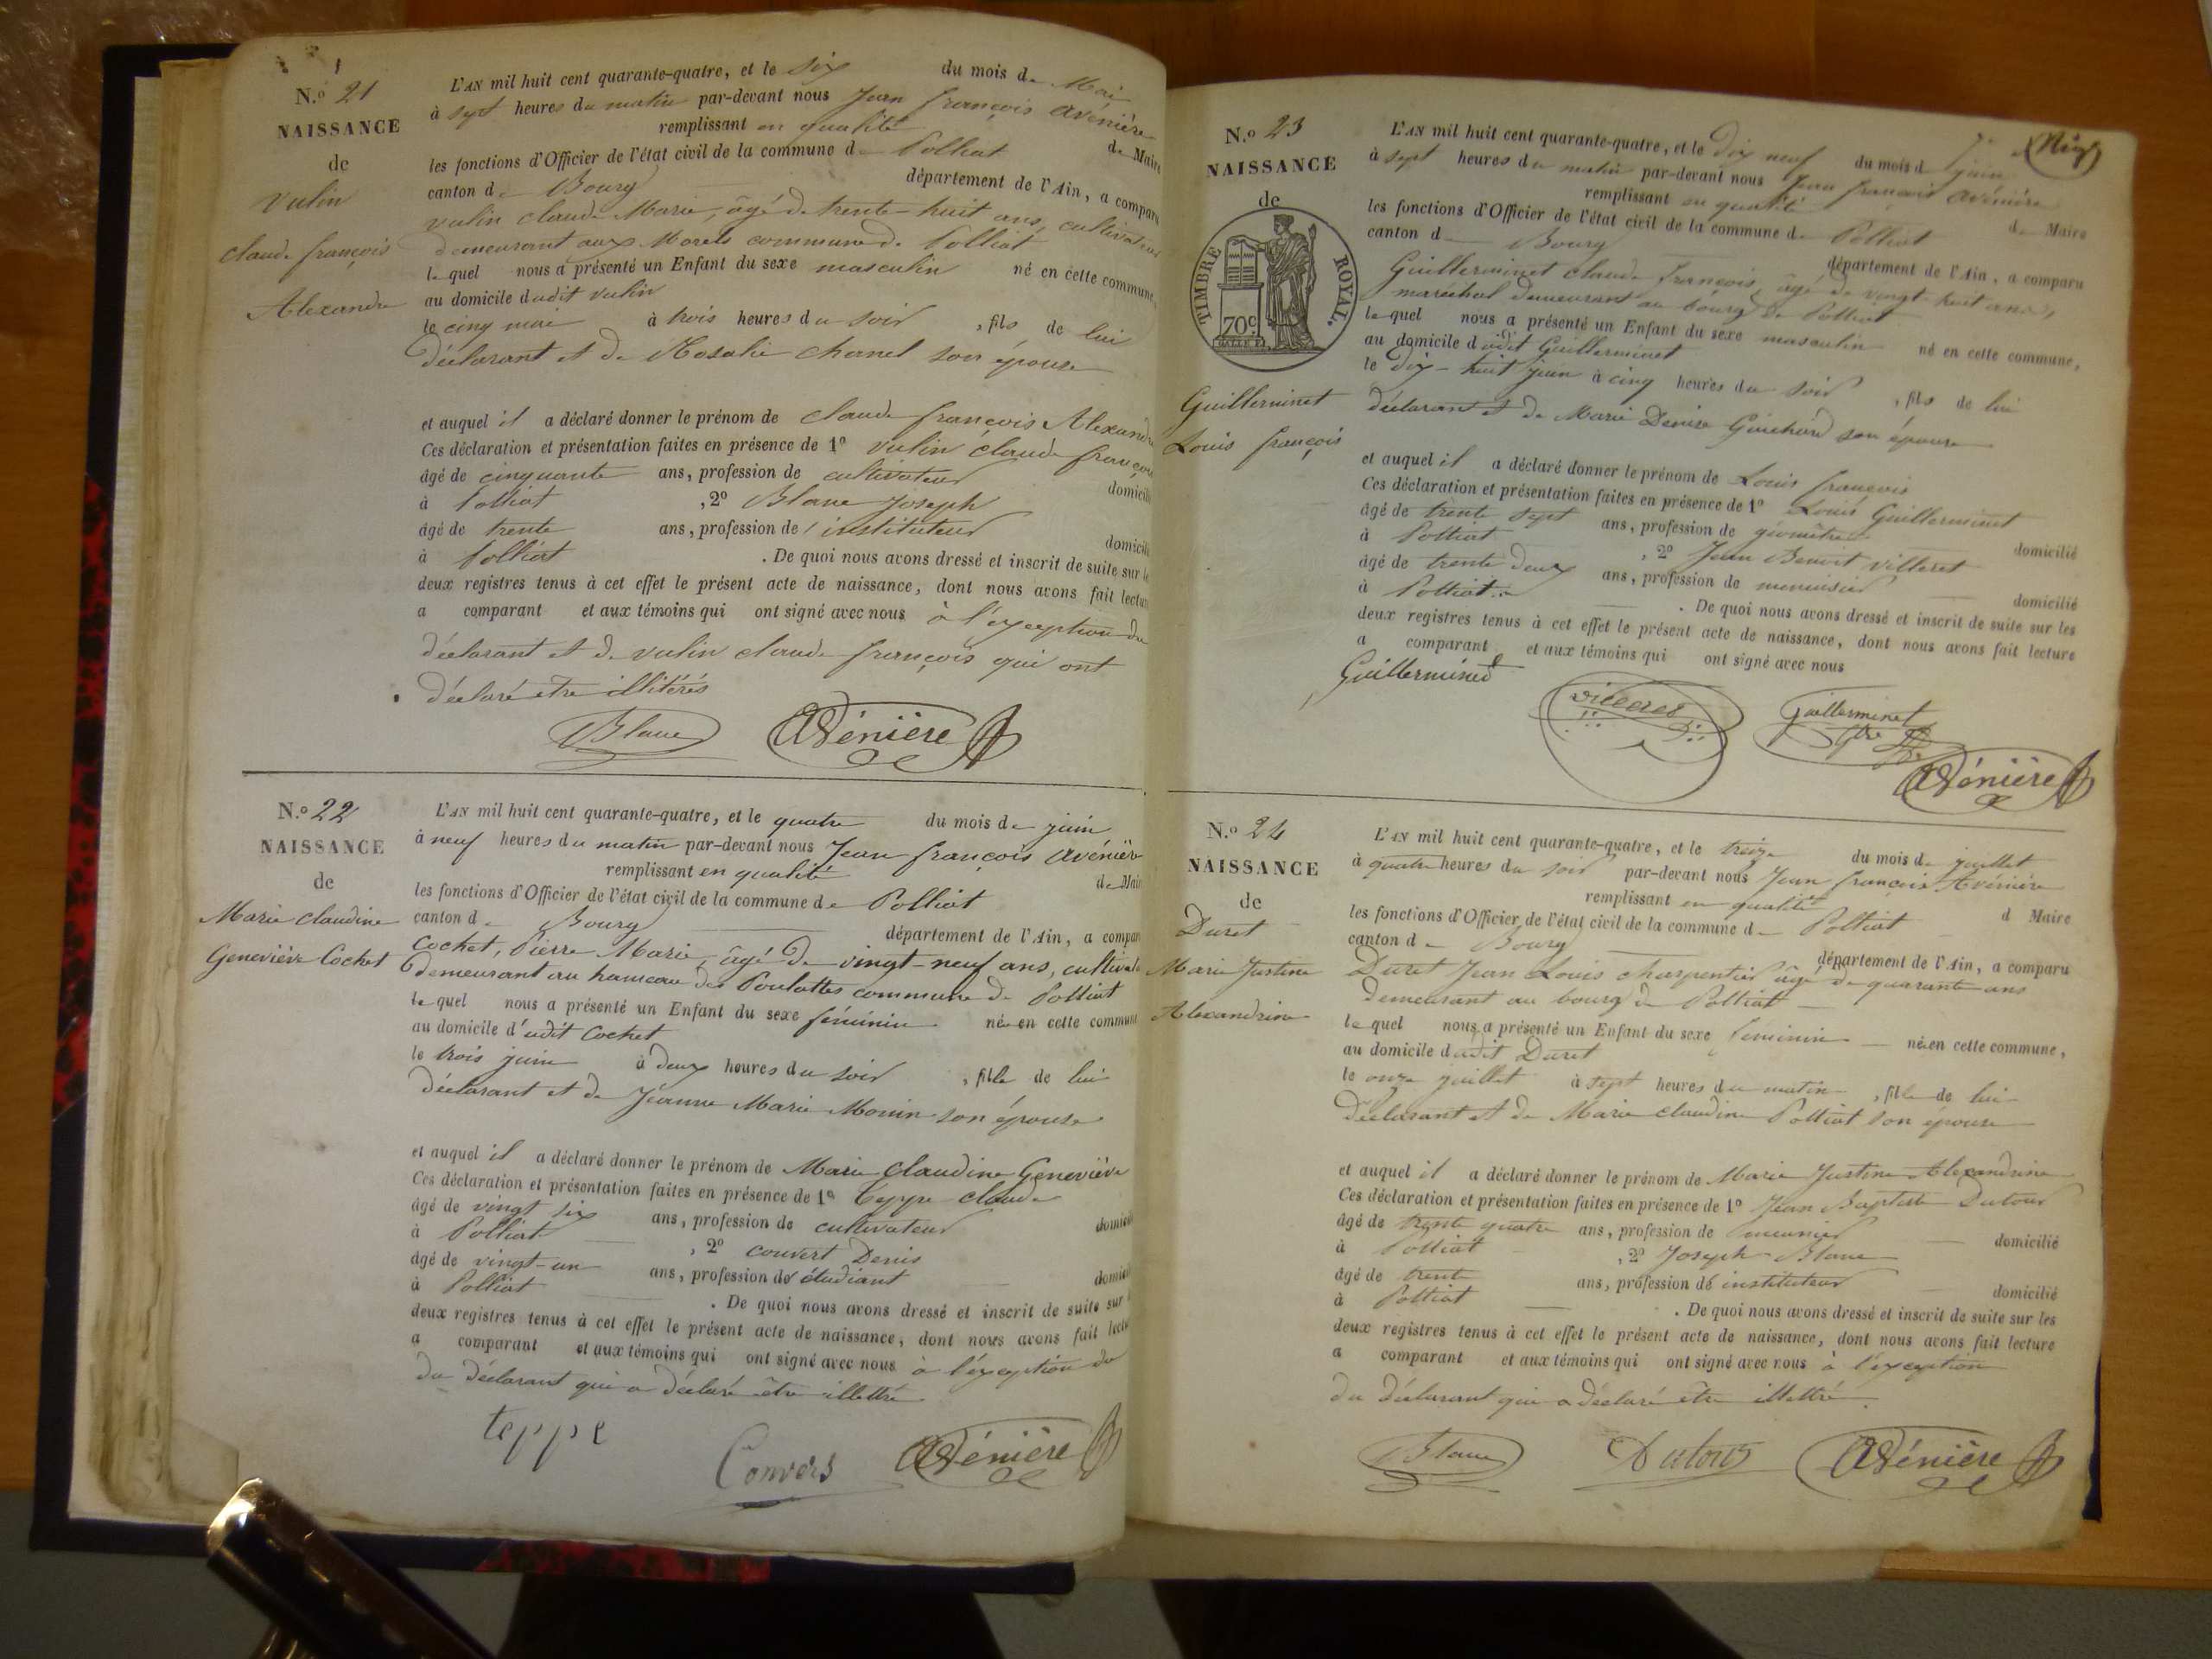 N.º 21
NAISSANCE
de
Vulin
Claude françois
Alexandre
L'AN mil huit cent quarante-quatre, et le six du mois de Mai
à sept heures du matin par-devant nous Jean françois Avénière
remplissant en qualité de Maire
les fonctions d'Officier de l'état civil de la commune de Polliat
canton de Bourg département de l'Ain, a comparu
vulin claude Marie, âgé de trente-huit ans, cultivateur
demeurant aux Morels commune de Polliat
lequel nous a présenté un Enfant du sexe masculin né en cette commune,
au domicile dudit vulin
le cinq mai à trois heures du soir, fils de lui
déclarant et de Rosalie chanel son épouse
et auquel il a déclaré donner le prénom de claude françois Alexandre
Ces déclaration et présentation faites en présence de 1º vulin claude françois
âgé de cinquante ans, profession de cultivateur domicilié
à Polliat, 2º Blanc Joseph
âgé de trente ans, profession de instituteur domicilié
à Polliat. De quoi nous avons dressé et inscrit de suite sur les
deux registres tenus à cet effet le présent acte de naissance, dont nous avons fait lecture
a comparant et aux témoins qui ont signé avec nous à l'exception du
déclarant et de vulin claude françois qui ont
déclaré être illitérés
Blanc Avénière
N.º 22
NAISSANCE
de
Marie claudine
Geneviève Cochet
L'AN mil huit cent quarante-quatre, et le quatre du mois de juin
à neuf heures du matin par-devant nous Jean françois Avénière
remplissant en qualité de Maire
les fonctions d'Officier de l'état civil de la commune de Polliat
canton de Bourg département de l'Ain, a comparu
Cochet, Pierre Marie, âgé de vingt-neuf ans, cultivateur
demeurant au hameau des Poulattes commune de Polliat
lequel nous a présenté un Enfant du sexe féminin née en cette commune
au domicile d'udit Cochet
le trois juin à deux heures du soir, fille de lui
déclarant et de Jeanne Marie Monin son épouse
et auquel il a déclaré donner le prénom de Marie Claudine Geneviève
Ces déclaration et présentation faites en présence de 1º Teppe Claude
âgé de vingt six ans, profession de cultivateur domicilié
à Polliat, 2º couvert Denis
âgé de vingt-un ans, profession de étudiant domicilié
à Polliat. De quoi nous avons dressé et inscrit de suite sur
deux registres tenus à cet effet le présent acte de naissance, dont nous avons fait lecture
a comparant et aux témoins qui ont signé avec nous à l'éxception du
du déclarant qui a déclaré être illettré
teppe Convers Avénière
N.º 23
NAISSANCE
de
TIMBRE ROYAL.
70c
Guillerminet
Louis françois
L'AN mil huit cent quarante-quatre, et le dix neuf du mois d juin
à sept heures du matin par-devant nous Jean françois Avénière
remplissant en qualité de Maire
les fonctions d'Officier de l'état civil de la commune de Polliat
canton d Bourg département de l'Ain, a comparu
Guillerminet claude françois, âgé de vingt-huit ans,
maréchal demeurant au bourg de Polliat
lequel nous a présenté un Enfant du sexe masculin né en cette commune,
au domicile dudit Guillerminet
le dix-huit juin à cinq heures du soir, fils de lui
déclarant et de Marie Denise Guichard son épouse
et auquel il a déclaré donner le prénom de Louis françois
Ces déclaration et présentation faites en présence de 1º Louis Guillerminet
âgé de trente sept ans, profession de géomètre domicilié
à Polliat, 2º Jean Benoit Villeret
âgé de trente deux ans, profession de menuisier domicilié
à Polliat. De quoi nous avons dressé et inscrit de suite sur les
deux registres tenus à cet effet le présent acte de naissance, dont nous avons fait lecture
a comparant et aux témoins qui ont signé avec nous
Guillerminet villeret Guillerminet Avénière
N.º 24
NAISSANCE
de
Duret
Marie Justine
Alexandrine
L'AN mil huit cent quarante-quatre, et le treize du mois de juillet
à quatre heures du soir par-devant nous Jean françois Avénière
remplissant en qualité d Maire
les fonctions d'Officier de l'état civil de la commune de Polliat
canton de Bourg département de l'Ain, a comparu
Duret Jean Louis charpentier âgé de quarante ans
demeurant au bourg de Polliat
lequel nous a présenté un Enfant du sexe feminin née en cette commune,
au domicile dudit Duret
le onze juillet à sept heures du matin, fille de lui
déclarant et de Marie claudine Polliat son épouse
et auquel il a déclaré donner le prénom de Marie Justine Alexandrine
Ces déclaration et présentation faites en présence de 1º Jean Baptiste Dutour
âgé de trente quatre ans, profession de meunier domicilié
à Polliat, 2º Joseph Blanc
âgé de trente ans, profession de instituteur domicilié
à Polliat. De quoi nous avons dressé et inscrit de suite sur les
deux registres tenus à cet effet le présent acte de naissance, dont nous avons fait lecture
a comparant et aux témoins qui ont signé avec nous à l'éxception
du déclarant qui a déclaré être illettré.
Blanc Dutour Avénière